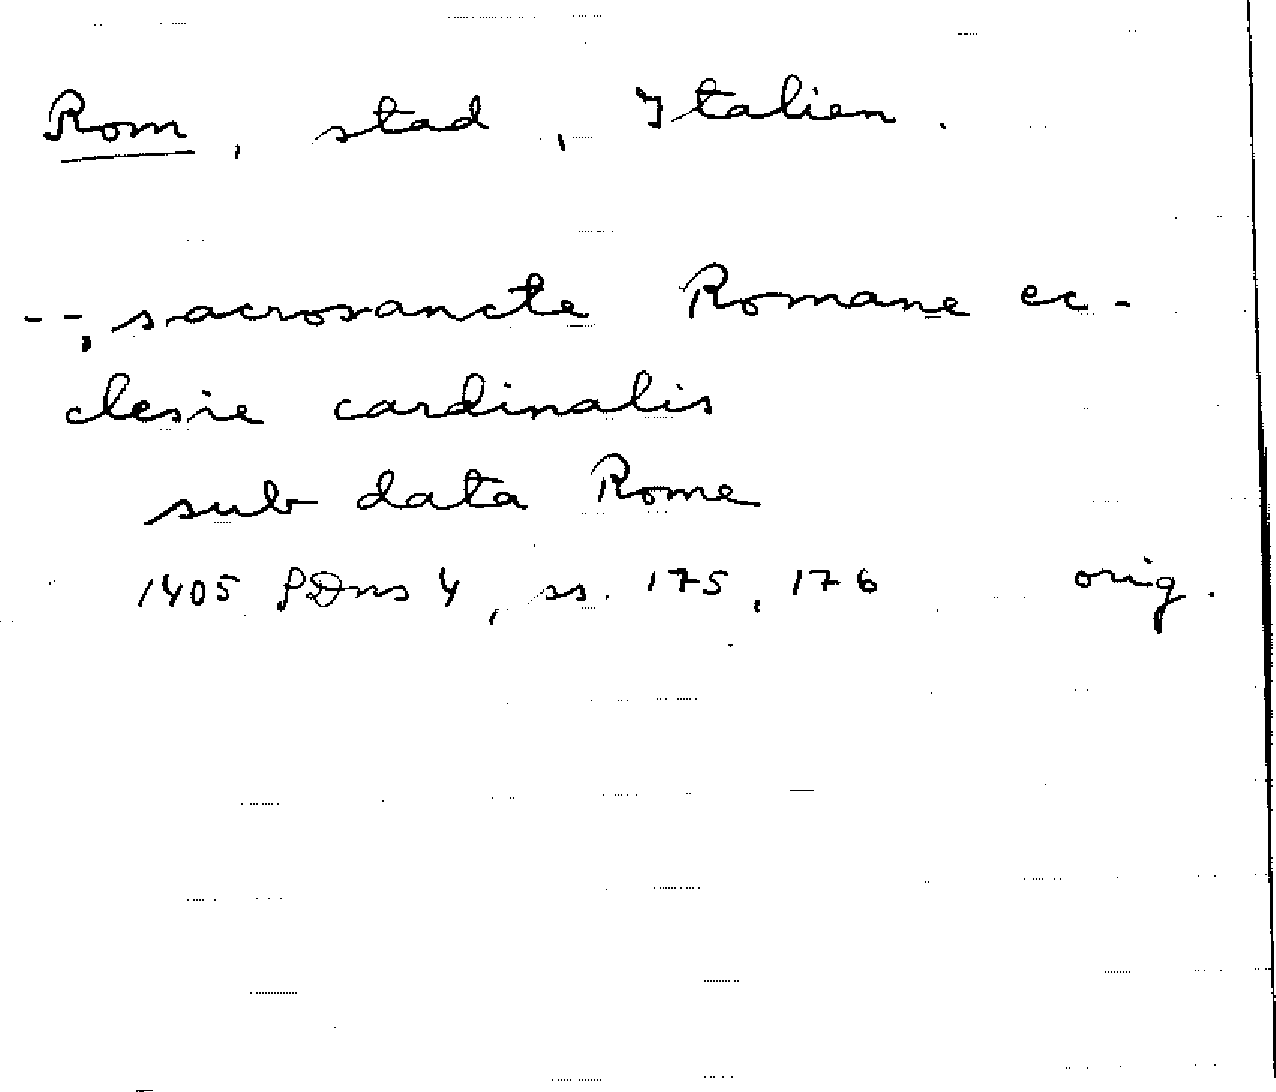 Rom, stad, Italien.
--, sacrosancte Romane ec-
clesie cardinalis
sub data Rome
1405 SDns 4, ss. 175, 176 orig.